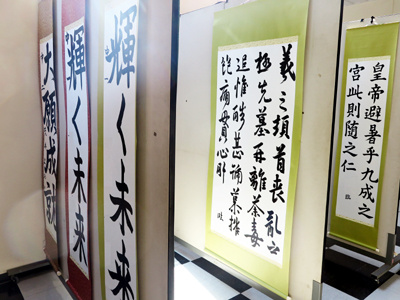 大願成就
輝く未来
輝く未来
羲之頓首喪乱之
極先墓再離荼毒
追惟酷甚号慕摧
絶痛貫心肝
皇帝避暑乎九成之
宮此則随之仁